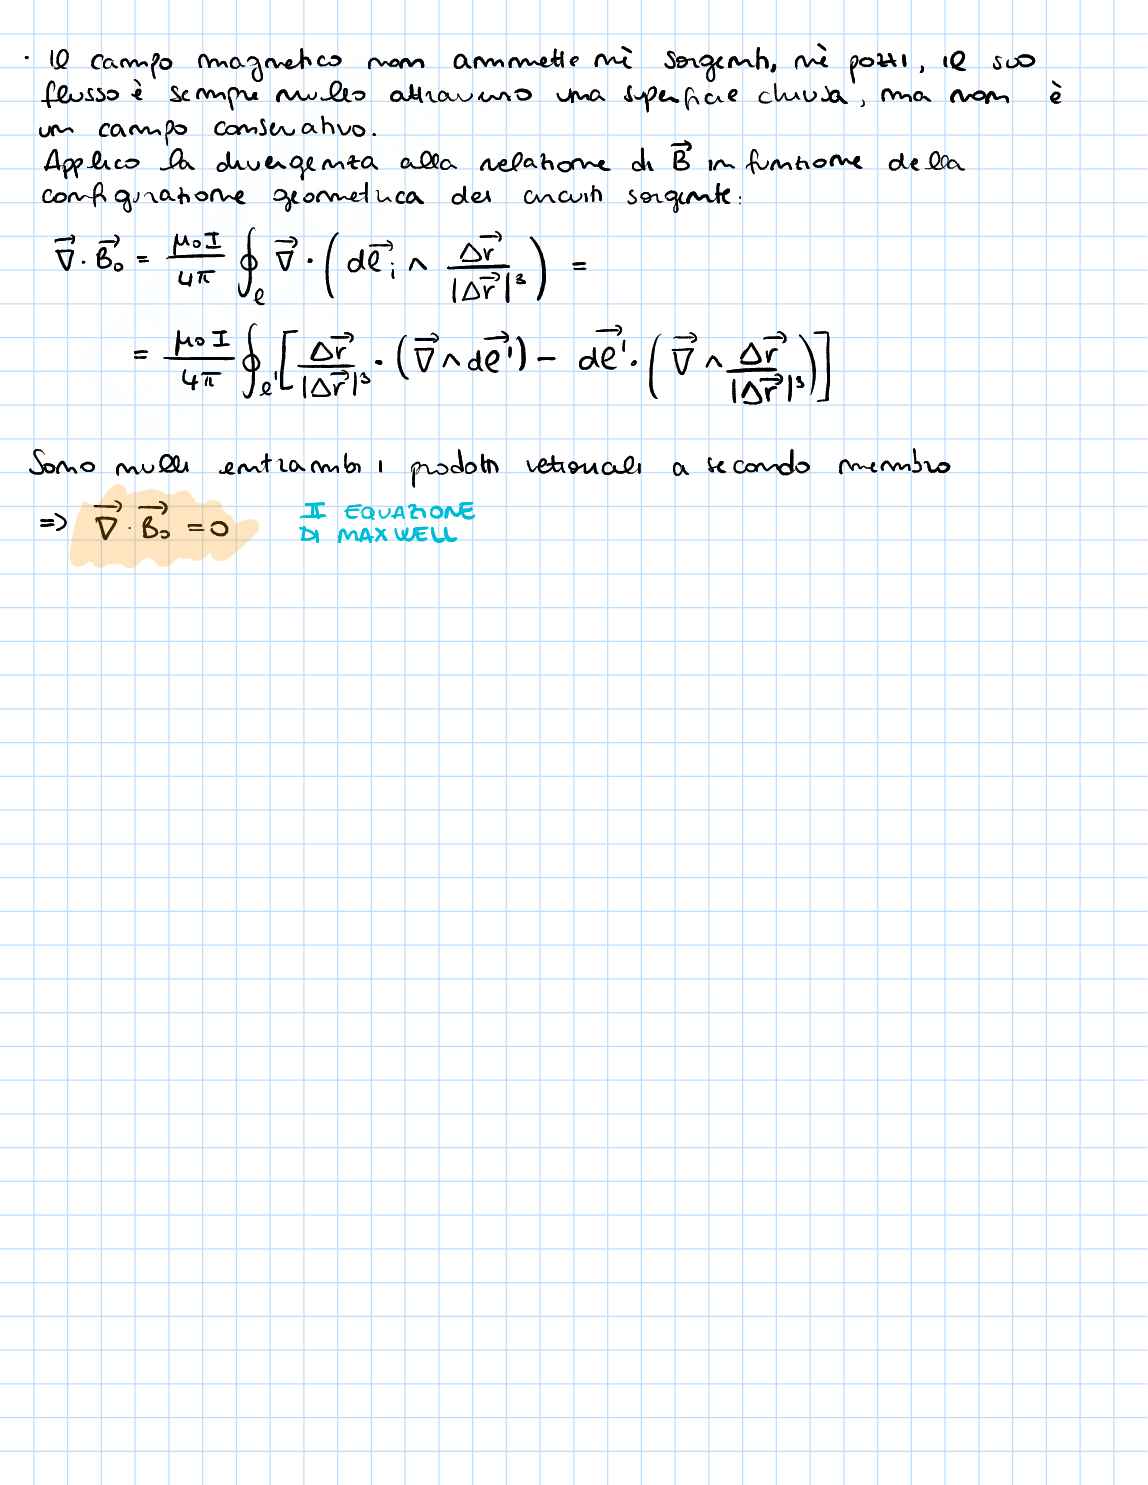 · Il campo magnetico non ammette nè sorgenti, nè pozzi, il suo
flusso è sempre nullo attraverso una superficie chiusa, ma non è
un campo conservativo.
Applico la divergenza alla relazione di B⃗ in funzione della
configurazione geometrica dei circuiti sorgente:
∇⃗ · B⃗₀ = μ₀I/4π ∮_l ∇⃗ · (dl⃗ᵢ ∧ Δr⃗/|Δr⃗|³) =
= μ₀I/4π ∮_l' [Δr⃗/|Δr⃗|³ · (∇⃗ ∧ dl⃗') − dl⃗' · (∇⃗ ∧ Δr⃗/|Δr⃗|³)]
Sono nulli entrambi i prodotti vettoriali a secondo membro
=> ∇⃗ · B⃗₀ = 0 II EQUAZIONE
DI MAXWELL